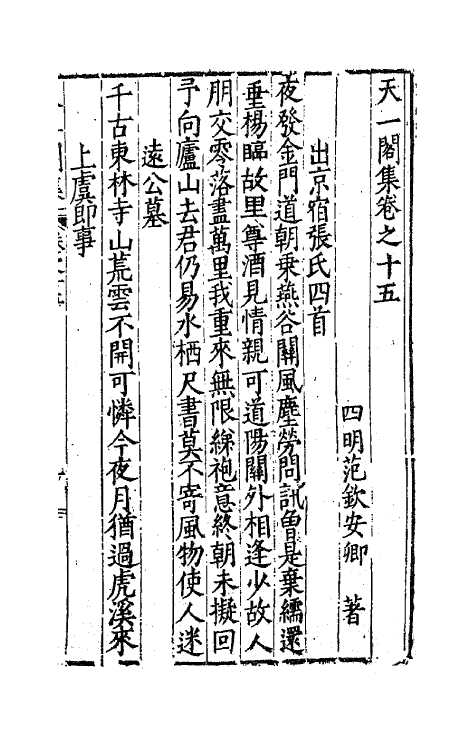 天一閣集卷之十五
四明范欽安卿 著
出京宿張氏四首
夜發金門道朝乘燕谷關風塵勞問訊曾是棄繻還
垂楊臨故里尊酒見情親可道陽關外相逢少故人
朋交零落盡萬里我重來無限綈袍意終朝未擬回
予向廬山去君仍易水栖尺書莫不寄風物使人迷
遠公墓
千古東林寺山荒雲不開可憐今夜月猶過虎溪來
上虞即事